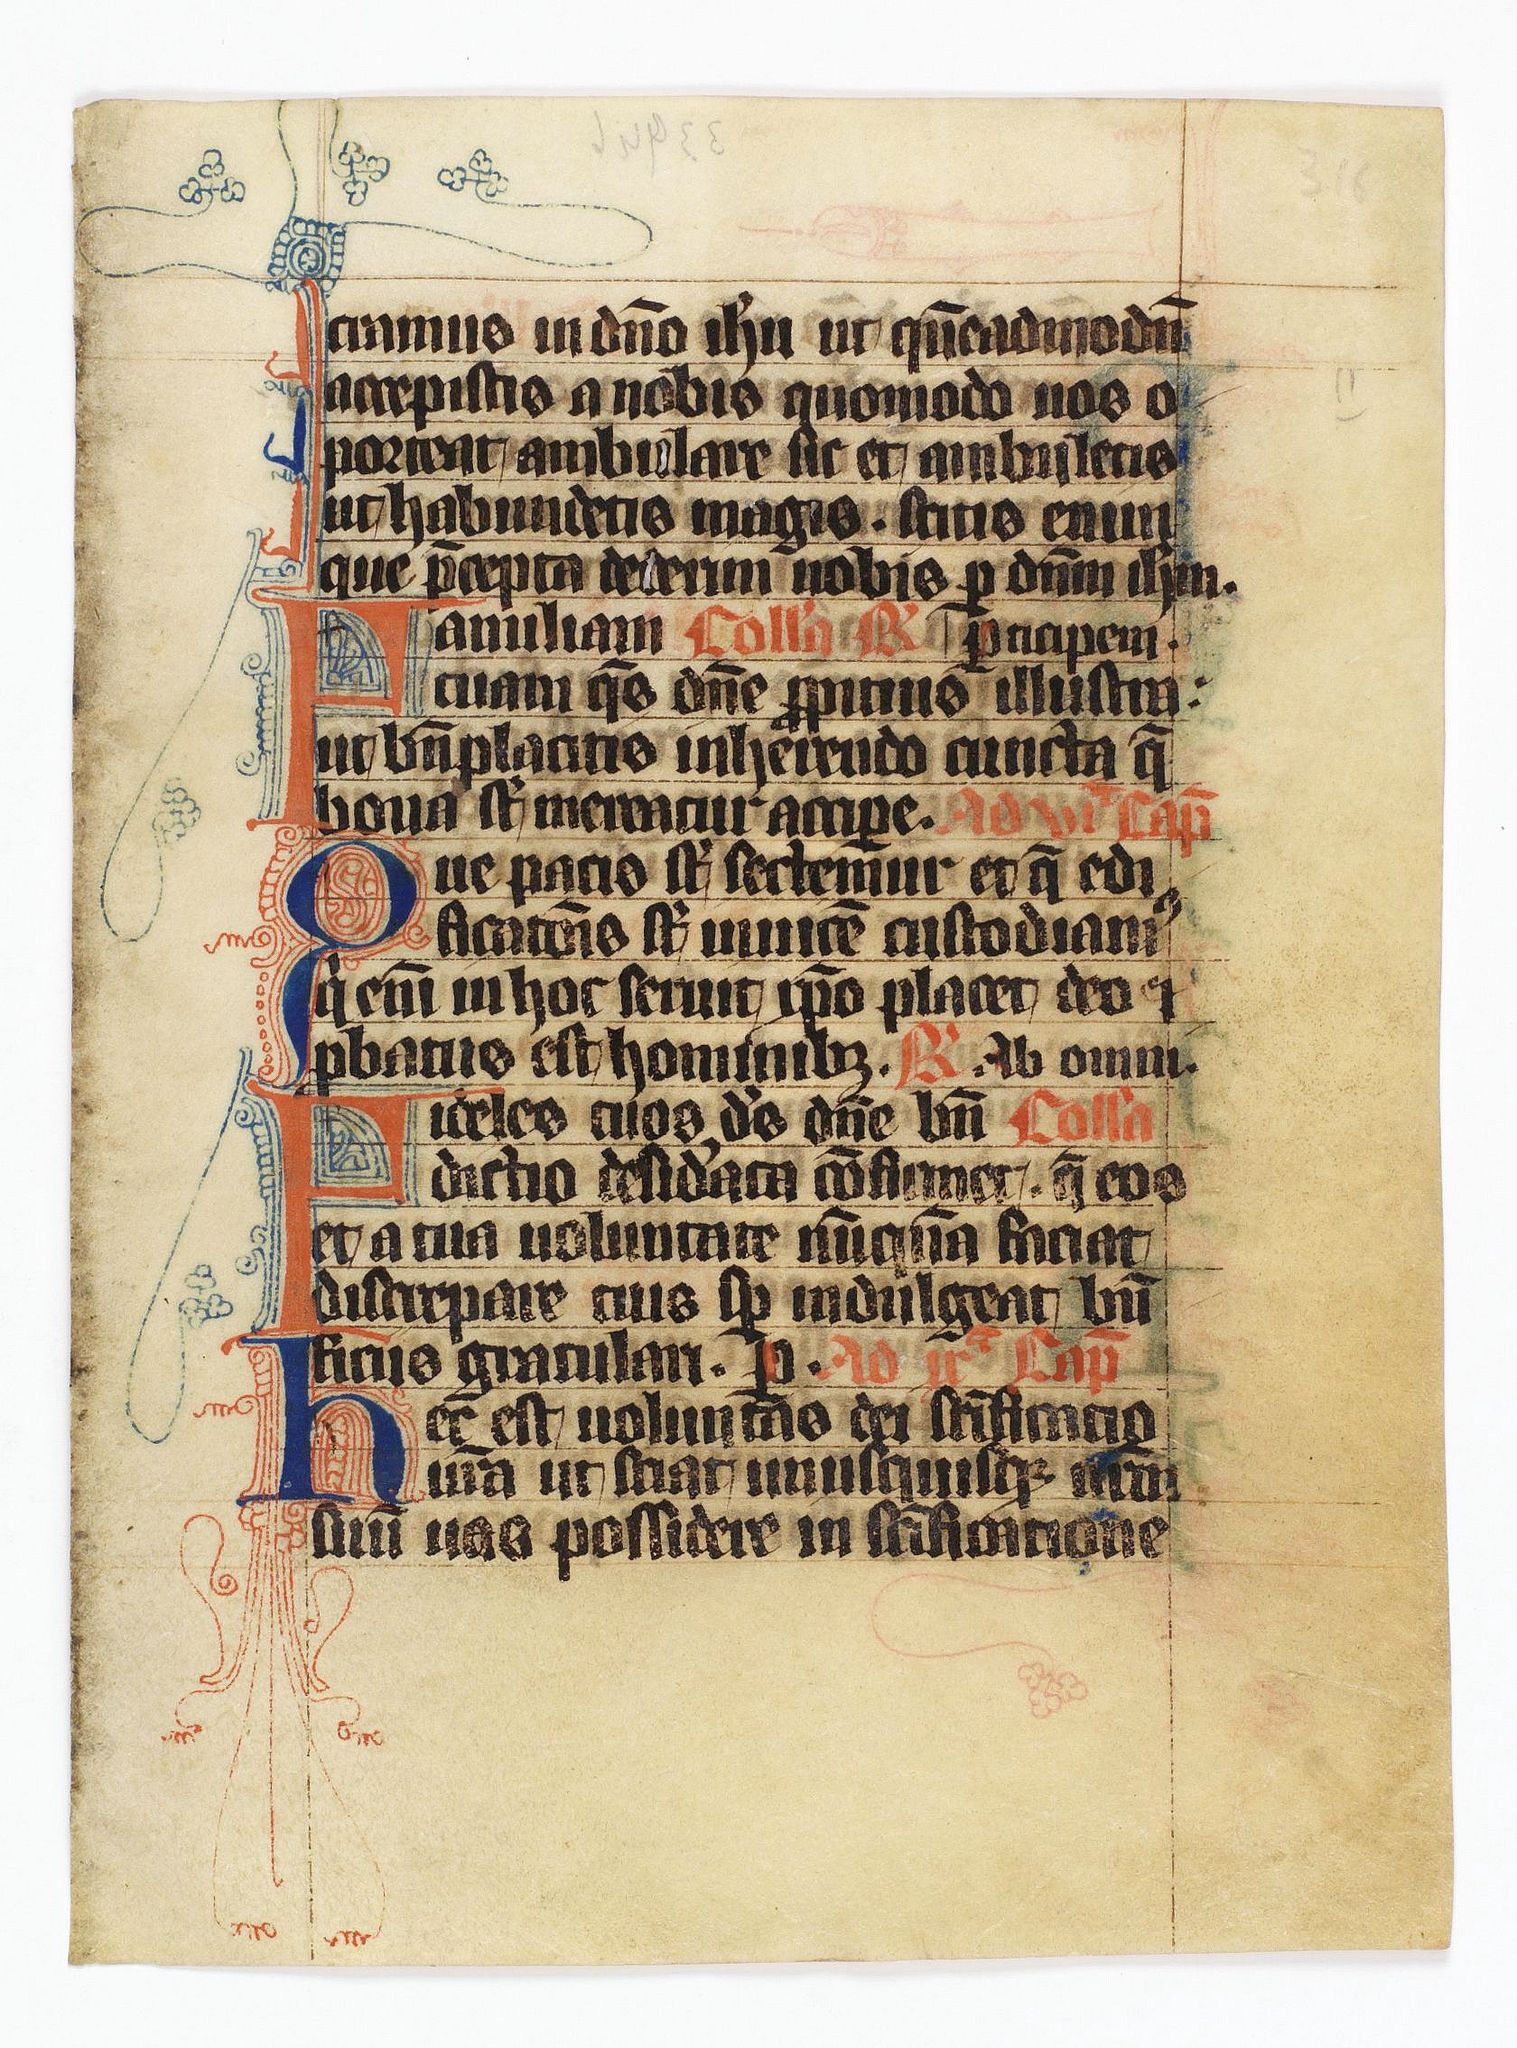 cramus in dn̄o ih̄u ut quē̄admodū
accepistis a nobis quomodo uos o
porteat ambulare sic et ambuletis
ut habundetis magis. scitis enim
que p̄cepta dederim uobis p dn̄m ih̄m.
Familiam Coll'a R' Ꝑticipem.
tuam q̄s dn̄e ꝓpitius illustra:
ut bn̄placitis inherendo cuncta q̄
bona st' mereatur accipe. Ad vīͣ Cap̄
Que pacis st' sectem̄ur et q̄ edi
ficatōīs st' inuicē custodiamꝰ
q̄ eīn in hoc seruit xp̄o placet deo et
ꝓbatus est hominibꝫ. R' Ab omni.
Fideles tuos d's dn̄e bn̄ Coll'a
dictio desid'ata cōfirmet. q̄ eos
et a tua uoluntate nūqūa faciat
discrepare tuis sp̄ indulgeat bn̄
ficiis gratulari. P̄. Ad ixͣ Cap̄
Hec̄ est uolunt̄as dei sc̄ificatio
ur̄a ut sciat unusquisqꝫ ur̄m
suū uas possidere in sc̄ificatione